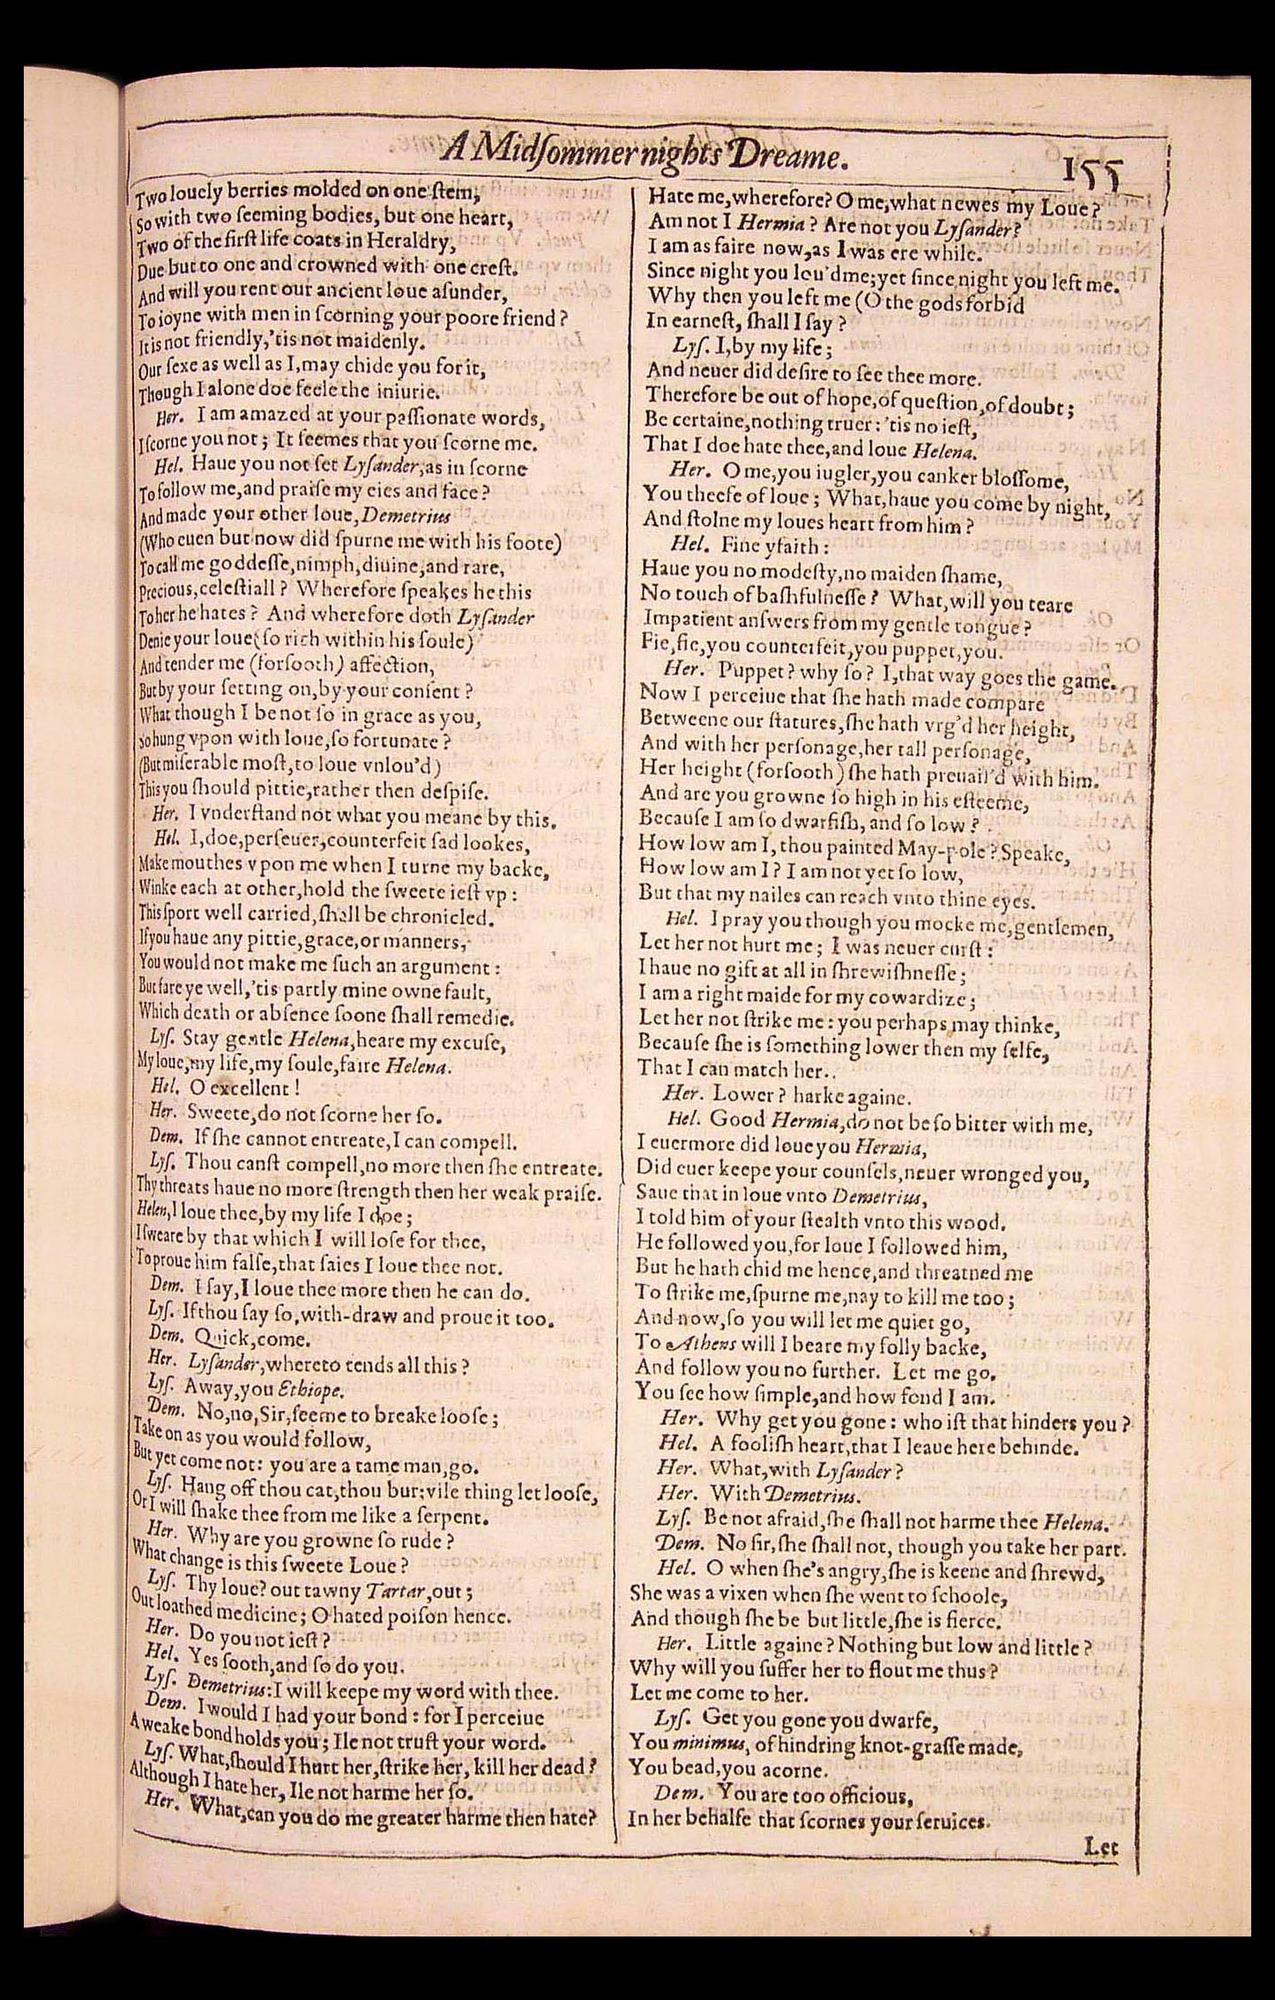 A Midſommer nights Dreame.
155
Two louely berries molded on one ſtem,
So with two ſeeming bodies, but one heart,
Two of the firſt life coats in Heraldry,
Due but to one and crowned with one creſt.
And will you rent our ancient loue aſunder,
To ioyne with men in ſcorning your poore friend?
It is not friendly, 'tis not maidenly.
Our ſexe as well as I, may chide you for it,
Though I alone doe feele the iniurie.
Her. I am amazed at your paſſionate words,
I ſcorne you not; It ſeemes that you ſcorne me.
Hel. Haue you not ſet Lyſander, as in ſcorne
To follow me, and praiſe my eies and face?
And made your other loue, Demetrius
(Who euen but now did ſpurne me with his foote)
To call me goddeſſe, nimph, diuine, and rare,
Precious, celeſtiall? Wherefore ſpeakes he this
To her he hates? And wherefore doth Lyſander
Denie your loue (ſo rich within his ſoule)
And tender me (forſooth) affection,
But by your ſetting on, by your conſent?
What though I be not ſo in grace as you,
So hung vpon with loue, ſo fortunate?
(But miſerable moſt, to loue vnlou'd)
This you ſhould pittie, rather then deſpiſe.
Her. I vnderſtand not what you meane by this.
Hel. I, doe, perſeuer, counterfeit ſad lookes,
Make mouthes vpon me when I turne my backe,
Winke each at other, hold the ſweete ieſt vp:
This ſport well carried, ſhall be chronicled.
If you haue any pittie, grace, or manners,
You would not make me ſuch an argument:
But fare ye well, 'tis partly mine owne fault,
Which death or abſence ſoone ſhall remedie.
Lyſ. Stay gentle Helena, heare my excuſe,
My loue, my life, my ſoule, faire Helena.
Hel. O excellent!
Her. Sweete, do not ſcorne her ſo.
Dem. If ſhe cannot entreate, I can compell.
Lyſ. Thou canſt compell, no more then ſhe entreate.
Thy threats haue no more ſtrength then her weak praiſe.
Helen, I loue thee, by my life I doe;
I ſweare by that which I will loſe for thee,
To proue him falſe, that ſaies I loue thee not.
Dem. I ſay, I loue thee more then he can do.
Lyſ. If thou ſay ſo, with-draw and proue it too.
Dem. Quick, come.
Her. Lyſander, whereto tends all this?
Lyſ. Away, you Ethiope.
Dem. No, no, Sir, ſeeme to breake looſe;
Take on as you would follow,
But yet come not: you are a tame man, go.
Lyſ. Hang off thou cat, thou bur; vile thing let looſe,
Or I will ſhake thee from me like a ſerpent.
Her. Why are you growne ſo rude?
What change is this ſweete Loue?
Lyſ. Thy loue? out tawny Tartar, out;
Out loathed medicine; O hated poiſon hence.
Her. Do you not ieſt?
Hel. Yes ſooth, and ſo do you.
Lyſ. Demetrius: I will keepe my word with thee.
Dem. I would I had your bond: for I perceiue
A weake bond holds you; Ile not truſt your word.
Lyſ. What, ſhould I hurt her, ſtrike her, kill her dead?
Although I hate her, Ile not harme her ſo.
Her. What, can you do me greater harme then hate?
Hate me, wherefore? O me, what newes my Loue?
Am not I Hermia? Are not you Lyſander?
I am as faire now, as I was ere while.
Since night you lou'd me; yet ſince night you left me.
Why then you left me (O the gods forbid
In earneſt, ſhall I ſay?
Lyſ. I, by my life;
And neuer did deſire to ſee thee more.
Therefore be out of hope, of queſtion, of doubt;
Be certaine, nothing truer: 'tis no ieſt,
That I doe hate thee, and loue Helena.
Her. O me, you iugler, you canker bloſſome,
You theefe of loue; What, haue you come by night,
And ſtolne my loues heart from him?
Hel. Fine yfaith:
Haue you no modeſty, no maiden ſhame,
No touch of baſhfulneſſe? What, will you teare
Impatient anſwers from my gentle tongue?
Fie, fie, you counterfeit, you puppet, you.
Her. Puppet? why ſo? I, that way goes the game.
Now I perceiue that ſhe hath made compare
Betweene our ſtatures, ſhe hath vrg'd her height,
And with her perſonage, her tall perſonage,
Her height (forſooth) ſhe hath preuail'd with him.
And are you growne ſo high in his eſteeme,
Becauſe I am ſo dwarfiſh, and ſo low?
How low am I, thou painted May-pole? Speake,
How low am I? I am not yet ſo low,
But that my nailes can reach vnto thine eyes.
Hel. I pray you though you mocke me, gentlemen,
Let her not hurt me; I was neuer curſt:
I haue no gift at all in ſhrewiſhneſſe;
I am a right maide for my cowardize;
Let her not ſtrike me: you perhaps may thinke,
Becauſe ſhe is ſomething lower then my ſelfe,
That I can match her.
Her. Lower? harke againe.
Hel. Good Hermia, do not be ſo bitter with me,
I euermore did loue you Hermia,
Did euer keepe your counſels, neuer wronged you,
Saue that in loue vnto Demetrius,
I told him of your ſtealth vnto this wood.
He followed you, for loue I followed him,
But he hath chid me hence, and threatned me
To ſtrike me, ſpurne me, nay to kill me too;
And now, ſo you will let me quiet go,
To Athens will I beare my folly backe,
And follow you no further. Let me go.
You ſee how ſimple, and how fond I am.
Her. Why get you gone: who iſt that hinders you?
Hel. A fooliſh heart, that I leaue here behinde.
Her. What, with Lyſander?
Her. With Demetrius.
Lyſ. Be not afraid, ſhe ſhall not harme thee Helena.
Dem. No ſir, ſhe ſhall not, though you take her part.
Hel. O when ſhe's angry, ſhe is keene and ſhrewd,
She was a vixen when ſhe went to ſchoole,
And though ſhe be but little, ſhe is fierce.
Her. Little againe? Nothing but low and little?
Why will you ſuffer her to flout me thus?
Let me come to her.
Lyſ. Get you gone you dwarfe,
You minimus, of hindring knot-graſſe made,
You bead, you acorne.
Dem. You are too officious,
In her behalfe that ſcornes your ſeruices.
Let